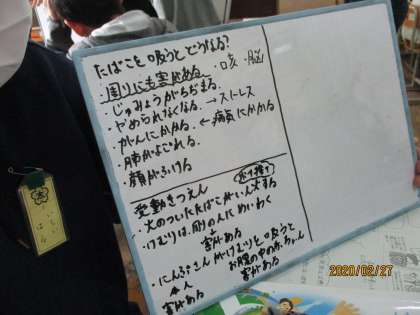 たばこを吸うとどうなる?
・周りにも害がある。 ・咳 ・脳
・じゅみょうがちぢまる。
・やめられなくなる。→ストレス
・がんにかかる。← 病気にかかる
・肺がよごれる。
・顔がふける
受動きつえん ポイ捨て
・火のついたたばこがいん火する
・けむりは、周りの人にめいわく
↓
害がある
・にんぷさんがけむりを吸うと
本人 お腹の中の赤ちゃん
害がある 害がある
2020/02/27